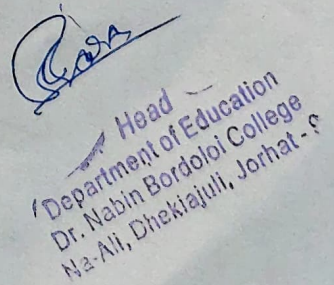 Head
Department of Education
Dr. Nabin Bordoloi College
Na-Ali, Dhekiajuli, Jorhat -